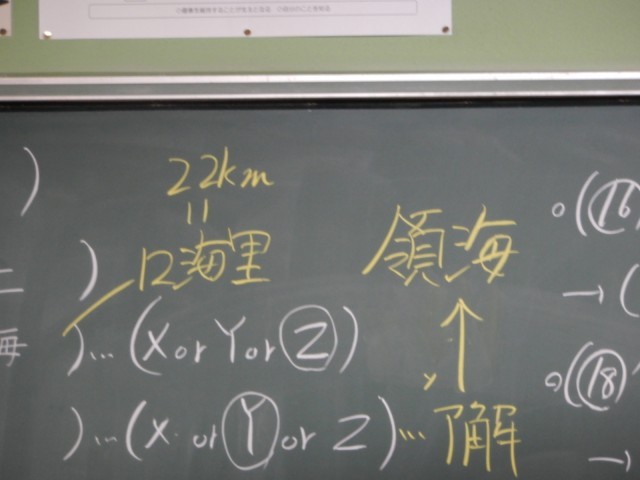 22km
=
12海里
領海
↑
)…(X or Y or Z)
)…(X or Y or Z)…了解
(16)
→(
(18)
→